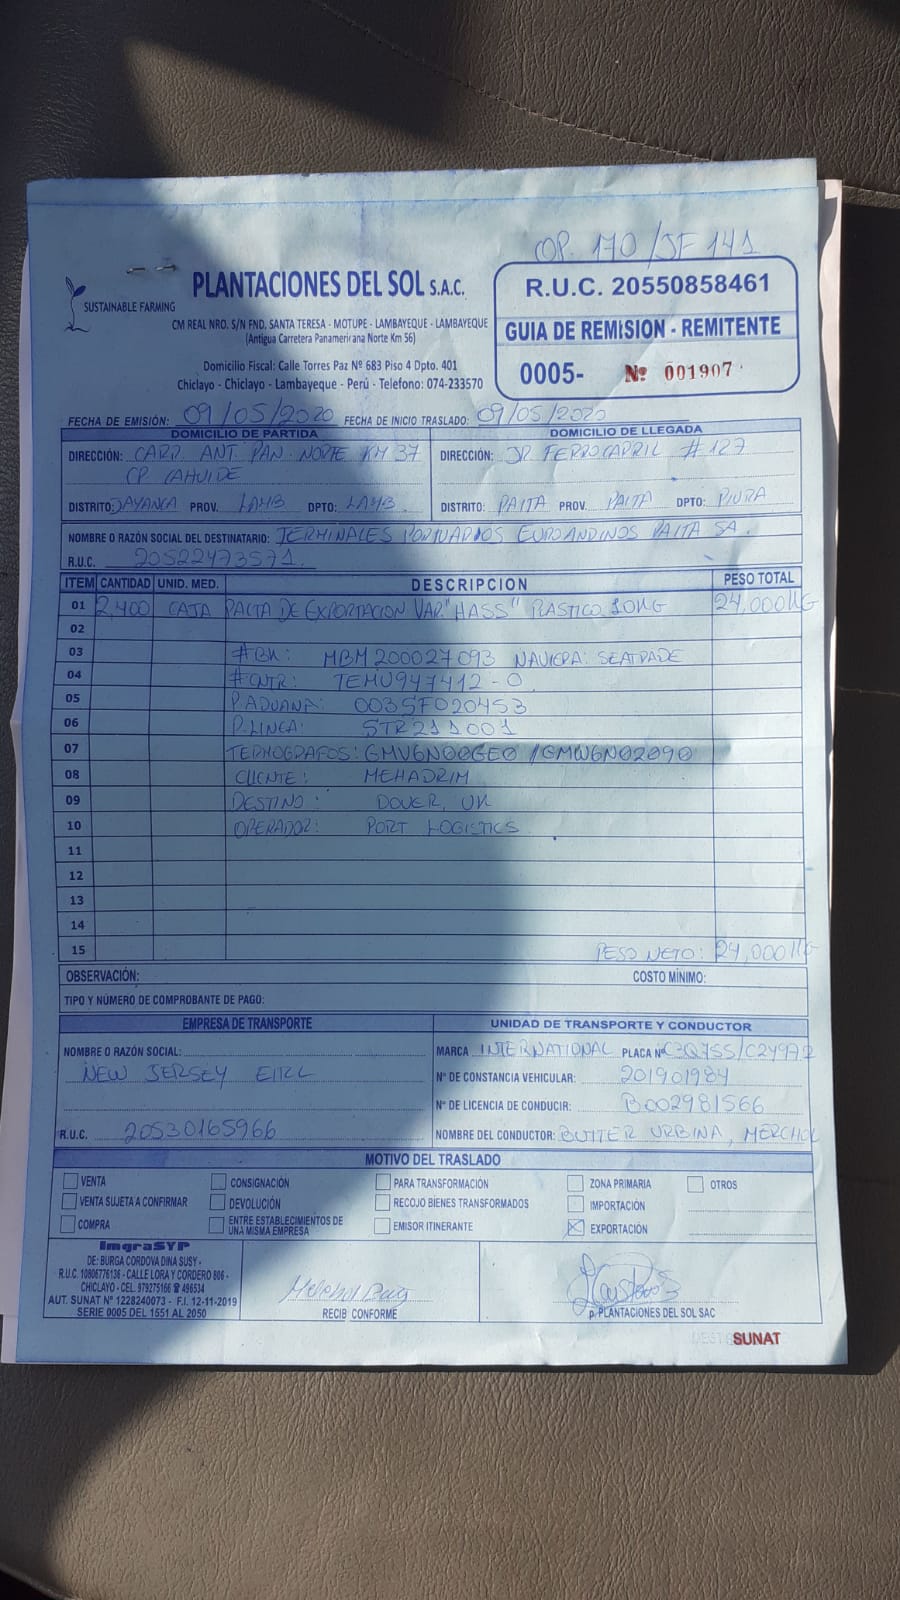 OP. 170 / JF 141
SUSTAINABLE FARMING
PLANTACIONES DEL SOL S.A.C.
CM REAL NRO. S/N FND. SANTA TERESA - MOTUPE - LAMBAYEQUE - LAMBAYEQUE
(Antigua Carretera Panamericana Norte Km 56)
Domicilio Fiscal: Calle Torres Paz Nº 683 Piso 4 Dpto. 401
Chiclayo - Chiclayo - Lambayeque - Perú - Telefono: 074-233570
R.U.C. 20550858461
GUIA DE REMISION - REMITENTE
0005- Nº 001907
FECHA DE EMISIÓN: 09/05/2020 FECHA DE INICIO TRASLADO: 09/05/2020
DOMICILIO DE PARTIDA
DIRECCIÓN: CARR. ANT. PAN. NORTE KM 37
CP CAHUIDE
DISTRITO: JAYANCA PROV. LAMB DPTO: LAMB.
DOMICILIO DE LLEGADA
DIRECCIÓN: JR FERROCARRIL # 127
DISTRITO: PAITA PROV. PAITA DPTO: PIURA
NOMBRE O RAZÓN SOCIAL DEL DESTINATARIO: TERMINALES PORTUARIOS EUROANDINOS PAITA SA.
R.U.C. 20522473571.
ITEM CANTIDAD UNID. MED. DESCRIPCION PESO TOTAL
01 2,400 CAJA PALTA DE EXPORTACION VAR. "HASS" PLASTICO 10KG 24,000KG
02
03 #BK: MBM200027093 NAVIERA: SEATRADE
04 #CNTR: TEMU947412-0
05 P.ADUANA: 0035F020453
06 P.LINEA: STR211001
07 TERMOGRAFOS: GMV6N00GE0 / GMW6N02090
08 CLIENTE: MEHADRIM
09 DESTINO: DOVER, UK
10 OPERADOR: PORT LOGISTICS
11
12
13
14
15 PESO NETO: 24,000KG
OBSERVACIÓN: COSTO MÍNIMO:
TIPO Y NÚMERO DE COMPROBANTE DE PAGO:
EMPRESA DE TRANSPORTE
NOMBRE O RAZÓN SOCIAL:
NEW JERSEY EIRL
R.U.C. 20530165966
UNIDAD DE TRANSPORTE Y CONDUCTOR
MARCA INTERNATIONAL PLACA Nº C3Q755/C2Y997
Nº DE CONSTANCIA VEHICULAR: 201901984
Nº DE LICENCIA DE CONDUCIR: B002981566
NOMBRE DEL CONDUCTOR: BUITER URBINA, MERCHOL
MOTIVO DEL TRASLADO
VENTA CONSIGNACIÓN PARA TRANSFORMACIÓN ZONA PRIMARIA OTROS
VENTA SUJETA A CONFIRMAR DEVOLUCIÓN RECOJO BIENES TRANSFORMADOS IMPORTACIÓN
COMPRA ENTRE ESTABLECIMIENTOS DE UNA MISMA EMPRESA EMISOR ITINERANTE EXPORTACIÓN
ImgraSYP
DE: BURGA CORDOVA DINA SUSY -
R.U.C. 10806776136 - CALLE LORA Y CORDERO 806 -
CHICLAYO - CEL. 979275166 ☎ 496534
AUT. SUNAT Nº 1228240073 - F.I. 12-11-2019
SERIE 0005 DEL 1551 AL 2050
RECIBI CONFORME
p. PLANTACIONES DEL SOL SAC
SUNAT